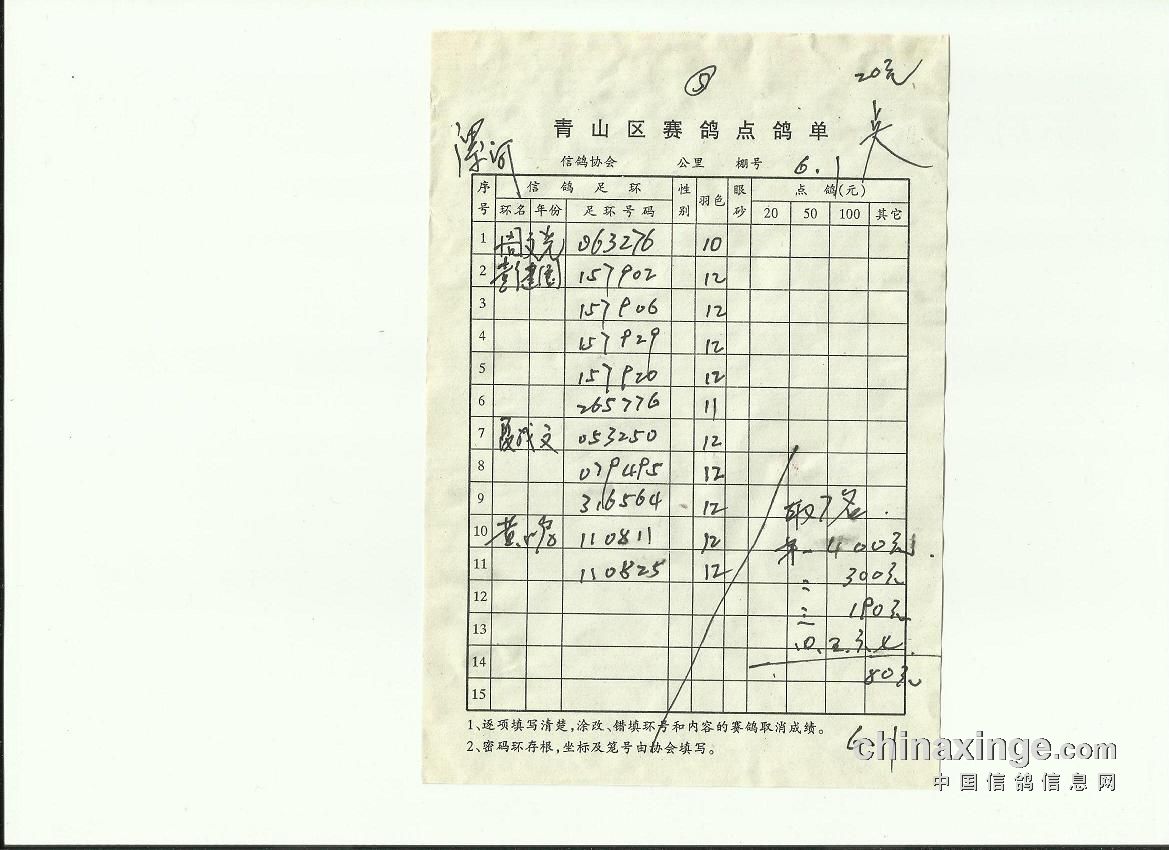 ⑤ 20元
青山区赛鸽点鸽单
漯河 信鸽协会 公里 棚号 6.1
序号 信鸽足环 性别 羽色 眼砂 点鸽(元)
环名 年份 足环号码 20 50 100 其它
1 周文光 063276 10
2 157902 12
3 157906 12
4 157929 12
5 157920 12
6 265776 11
7 文 053250 12
8 079495 12
9 316564 12
10 黄 110811 12
11 110825 12
12
13
14
15
取7名
第一 400元
二 300元
三 190元
四.五.六.七
80元
1、逐项填写清楚,涂改、错填环号和内容的赛鸽取消成绩。
2、密码环存根,坐标及笼号由协会填写。
chinaxinge.com
中国信鸽信息网